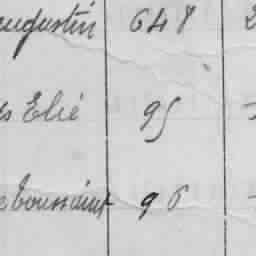 augustin 648 2
s Elie 95
e Toussaint 96